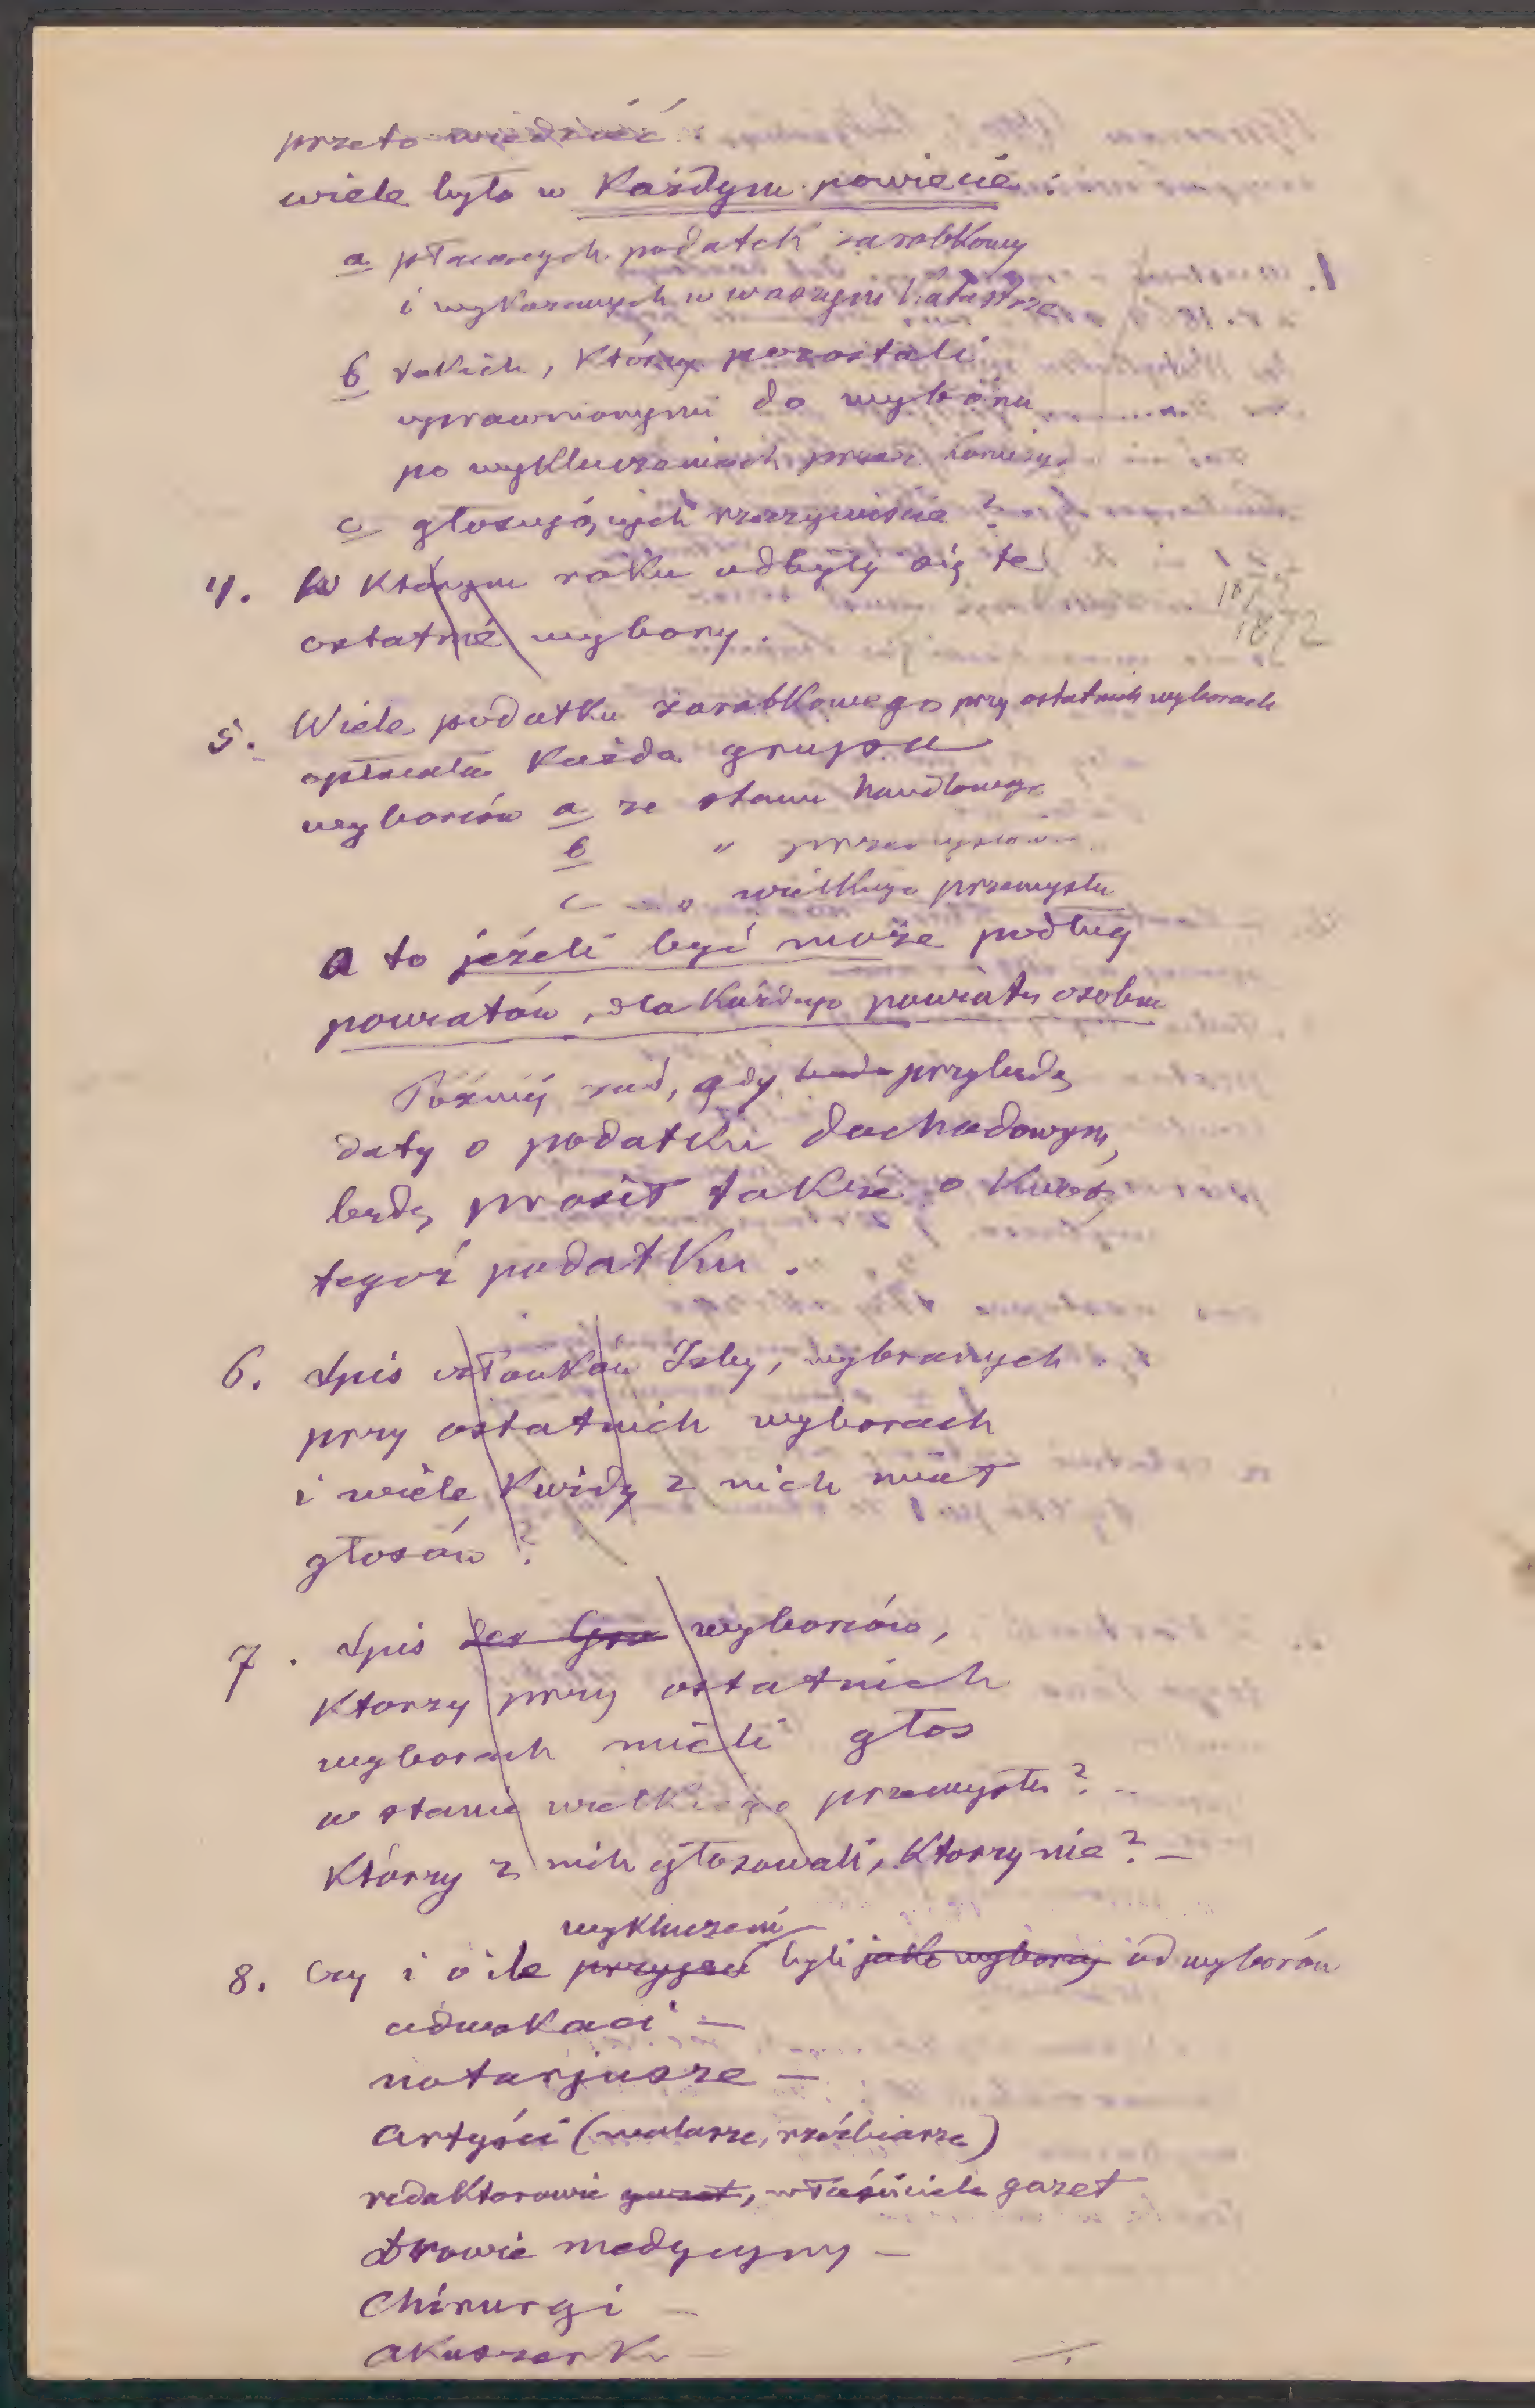 przeto wiedzieć
wiele było w każdym powiecie:
a płacących podatek zarobkowy
i wykazanych w waszym katastrze
b takich, którzy pozostali
uprawnionymi do wyboru
po wykluczeniach przez komisyę
c głosujących rzeczywiście?
4. W którym roku odbyły się te
ostatnie wybory.
1872
5. Wiele podatku zarobkowego przy ostatnich wyborach
opłacała każda grupa
wyborców a ze stanu handlowego
b " przemysłu
c " wielkiego przemysłu
a to jeżeli być może podług
powiatów, dla każdego powiatu osobno
Później zaś, gdy przybędą
daty o podatku dochodowym,
będę prosił także o kwotę
tegoż podatku.
6. Spis członków Izby, wybranych
przy ostatnich wyborach
i wiele każdy z nich miał
głosów?
7. Spis wyborców,
którzy przy ostatnich
wyborach mieli głos
w stanie wielkiego przemysłu? -
Którzy z nich głosowali, którzy nie? -
wykluczeni
8. Czy i o ile przyjęci byli jako wyborcy od wyborów
adwokaci -
notarjusze -
Artyści (malarze, rzeźbiarze)
redaktorowie gazet, właściciele gazet
Drowie medycyny -
Chirurgi -
akuszerki -